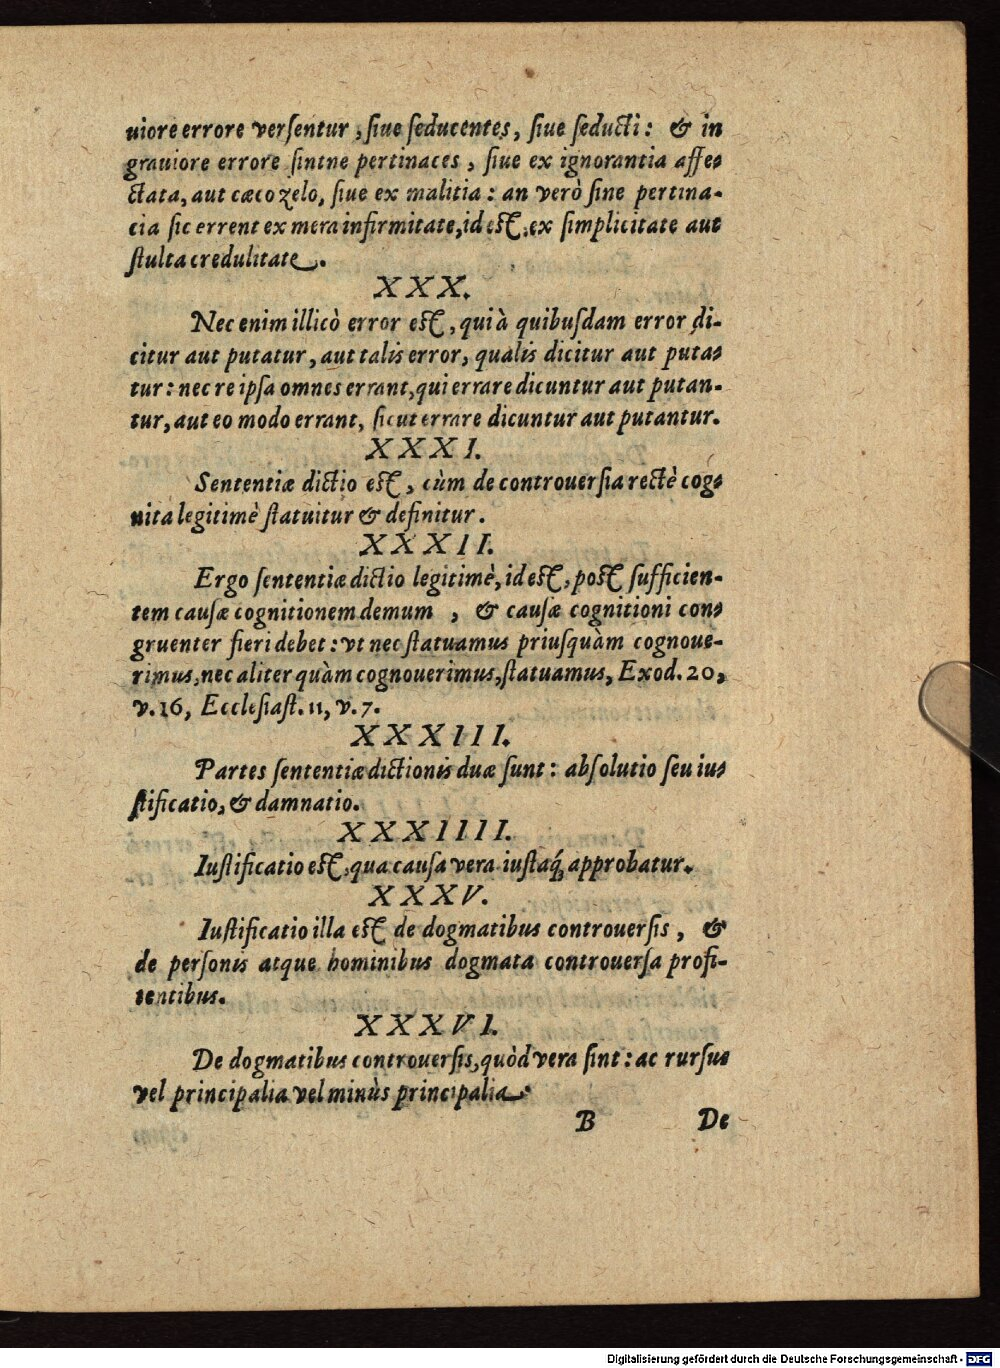 uiore errore verſentur, ſiue ſeducentes, ſiue ſeducti: & in
grauiore errore ſintne pertinaces, ſiue ex ignorantia affe-
ctata, aut cæco zelo, ſiue ex malitia: an verò ſine pertina-
cia ſic errent ex mera infirmitate, id eſt, ex ſimplicitate aut
ſtulta credulitate.
XXX.
Nec enim illicò error eſt, qui à quibuſdam error di-
citur aut putatur, aut talis error, qualis dicitur aut puta-
tur: nec re ipſa omnes errant, qui errare dicuntur aut putan-
tur, aut eo modo errant, ſicut errare dicuntur aut putantur.
XXXI.
Sententiæ dictio eſt, cùm de controuerſia rectè cog-
nita legitimè ſtatuitur & definitur.
XXXII.
Ergo ſententiæ dictio legitimè, id eſt, poſt ſufficien-
tem cauſæ cognitionem demum, & cauſæ cognitioni con-
gruenter fieri debet: vt nec ſtatuamus priuſquàm cognoue-
rimus, nec aliter quàm cognouerimus, ſtatuamus, Exod. 20,
v. 16, Eccleſiaſt. 11, v. 7.
XXXIII.
Partes ſententiæ dictionis duæ ſunt: abſolutio ſeu iu-
ſtificatio, & damnatio.
XXXIIII.
Iuſtificatio eſt, qua cauſa vera iuſtaq́; approbatur.
XXXV.
Iuſtificatio illa eſt de dogmatibus controuerſis, &
de perſonis atque hominibus dogmata controuerſa profi-
tentibus.
XXXVI.
De dogmatibus controuerſis, quòd vera ſint: ac rurſus
vel principalia vel minùs principalia.
B De
Digitalisierung gefördert durch die Deutsche Forschungsgemeinschaft - DFG